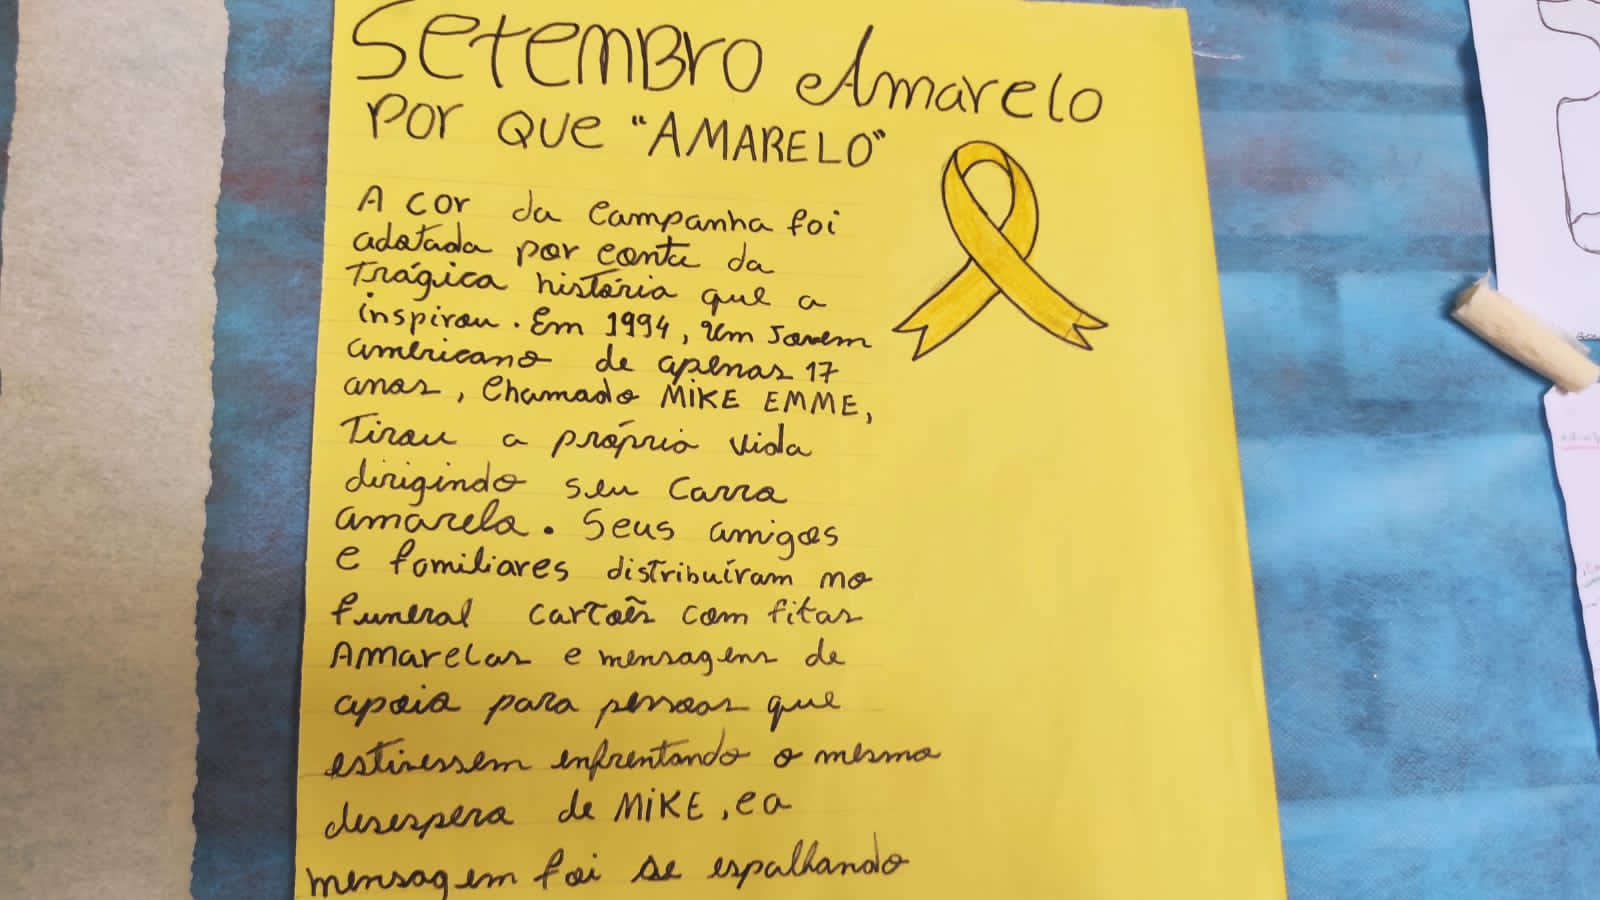 Setembro Amarelo
Por que "AMARELO"
A cor da campanha foi
adotada por conta da
trágica história que a
inspirou. Em 1994, um jovem
americano de apenas 17
anos, chamado MIKE EMME,
Tirou a própria vida
dirigindo seu carro
amarelo. Seus amigos
e familiares distribuíram no
funeral cartões com fitas
Amarelas e mensagens de
apoio para pessoas que
estivessem enfrentando o mesmo
desespero de MIKE, e a
mensagem foi se espalhando